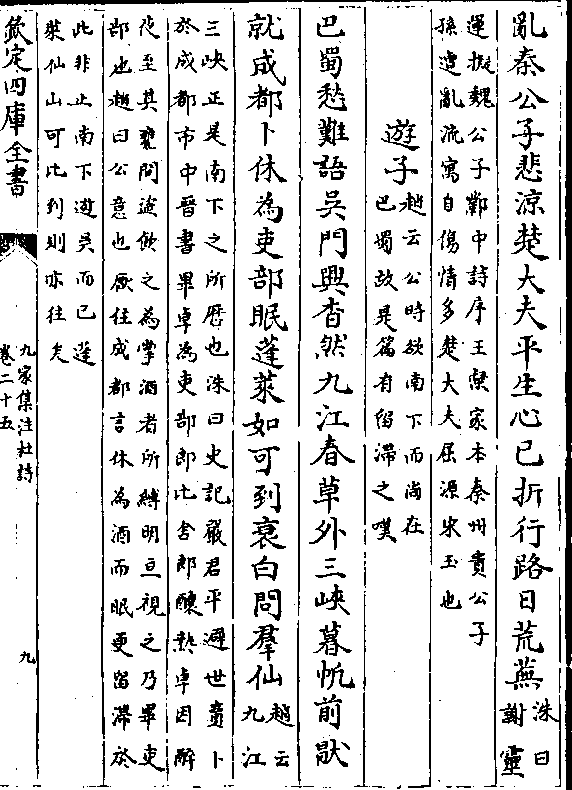 亂秦公子悲涼楚大夫平生心已折行路日荒蕪洙曰
謝靈
運擬魏公子鄴中詩序王粲家本秦州貴公子
孫遭亂流寓自傷情多楚大夫屈源宋玉也
遊子趙云公時欲南下而尚在
巴蜀故是篇有留滯之嘆
巴蜀愁難語吳門興杳然九江春草外三峽暮帆前厭
就成都卜休為吏部眠蓬萊如可到衰白問羣仙趙云
九江
三峽正是南下之所歴也洙曰史記嚴君平避世賣卜
於成都市中晉書畢卓為吏部郎比舍郎釀熟卓因醉
夜至其甕間盜飲之為掌酒者所縛明旦視之乃畢吏
部也趙曰公意也厭往成都言休為酒而眠更留滯於
此非止南下遊吳而已蓬
萊仙山可比到則亦往矣
欽定四庫全書
九家集注杜詩
卷二十五
九